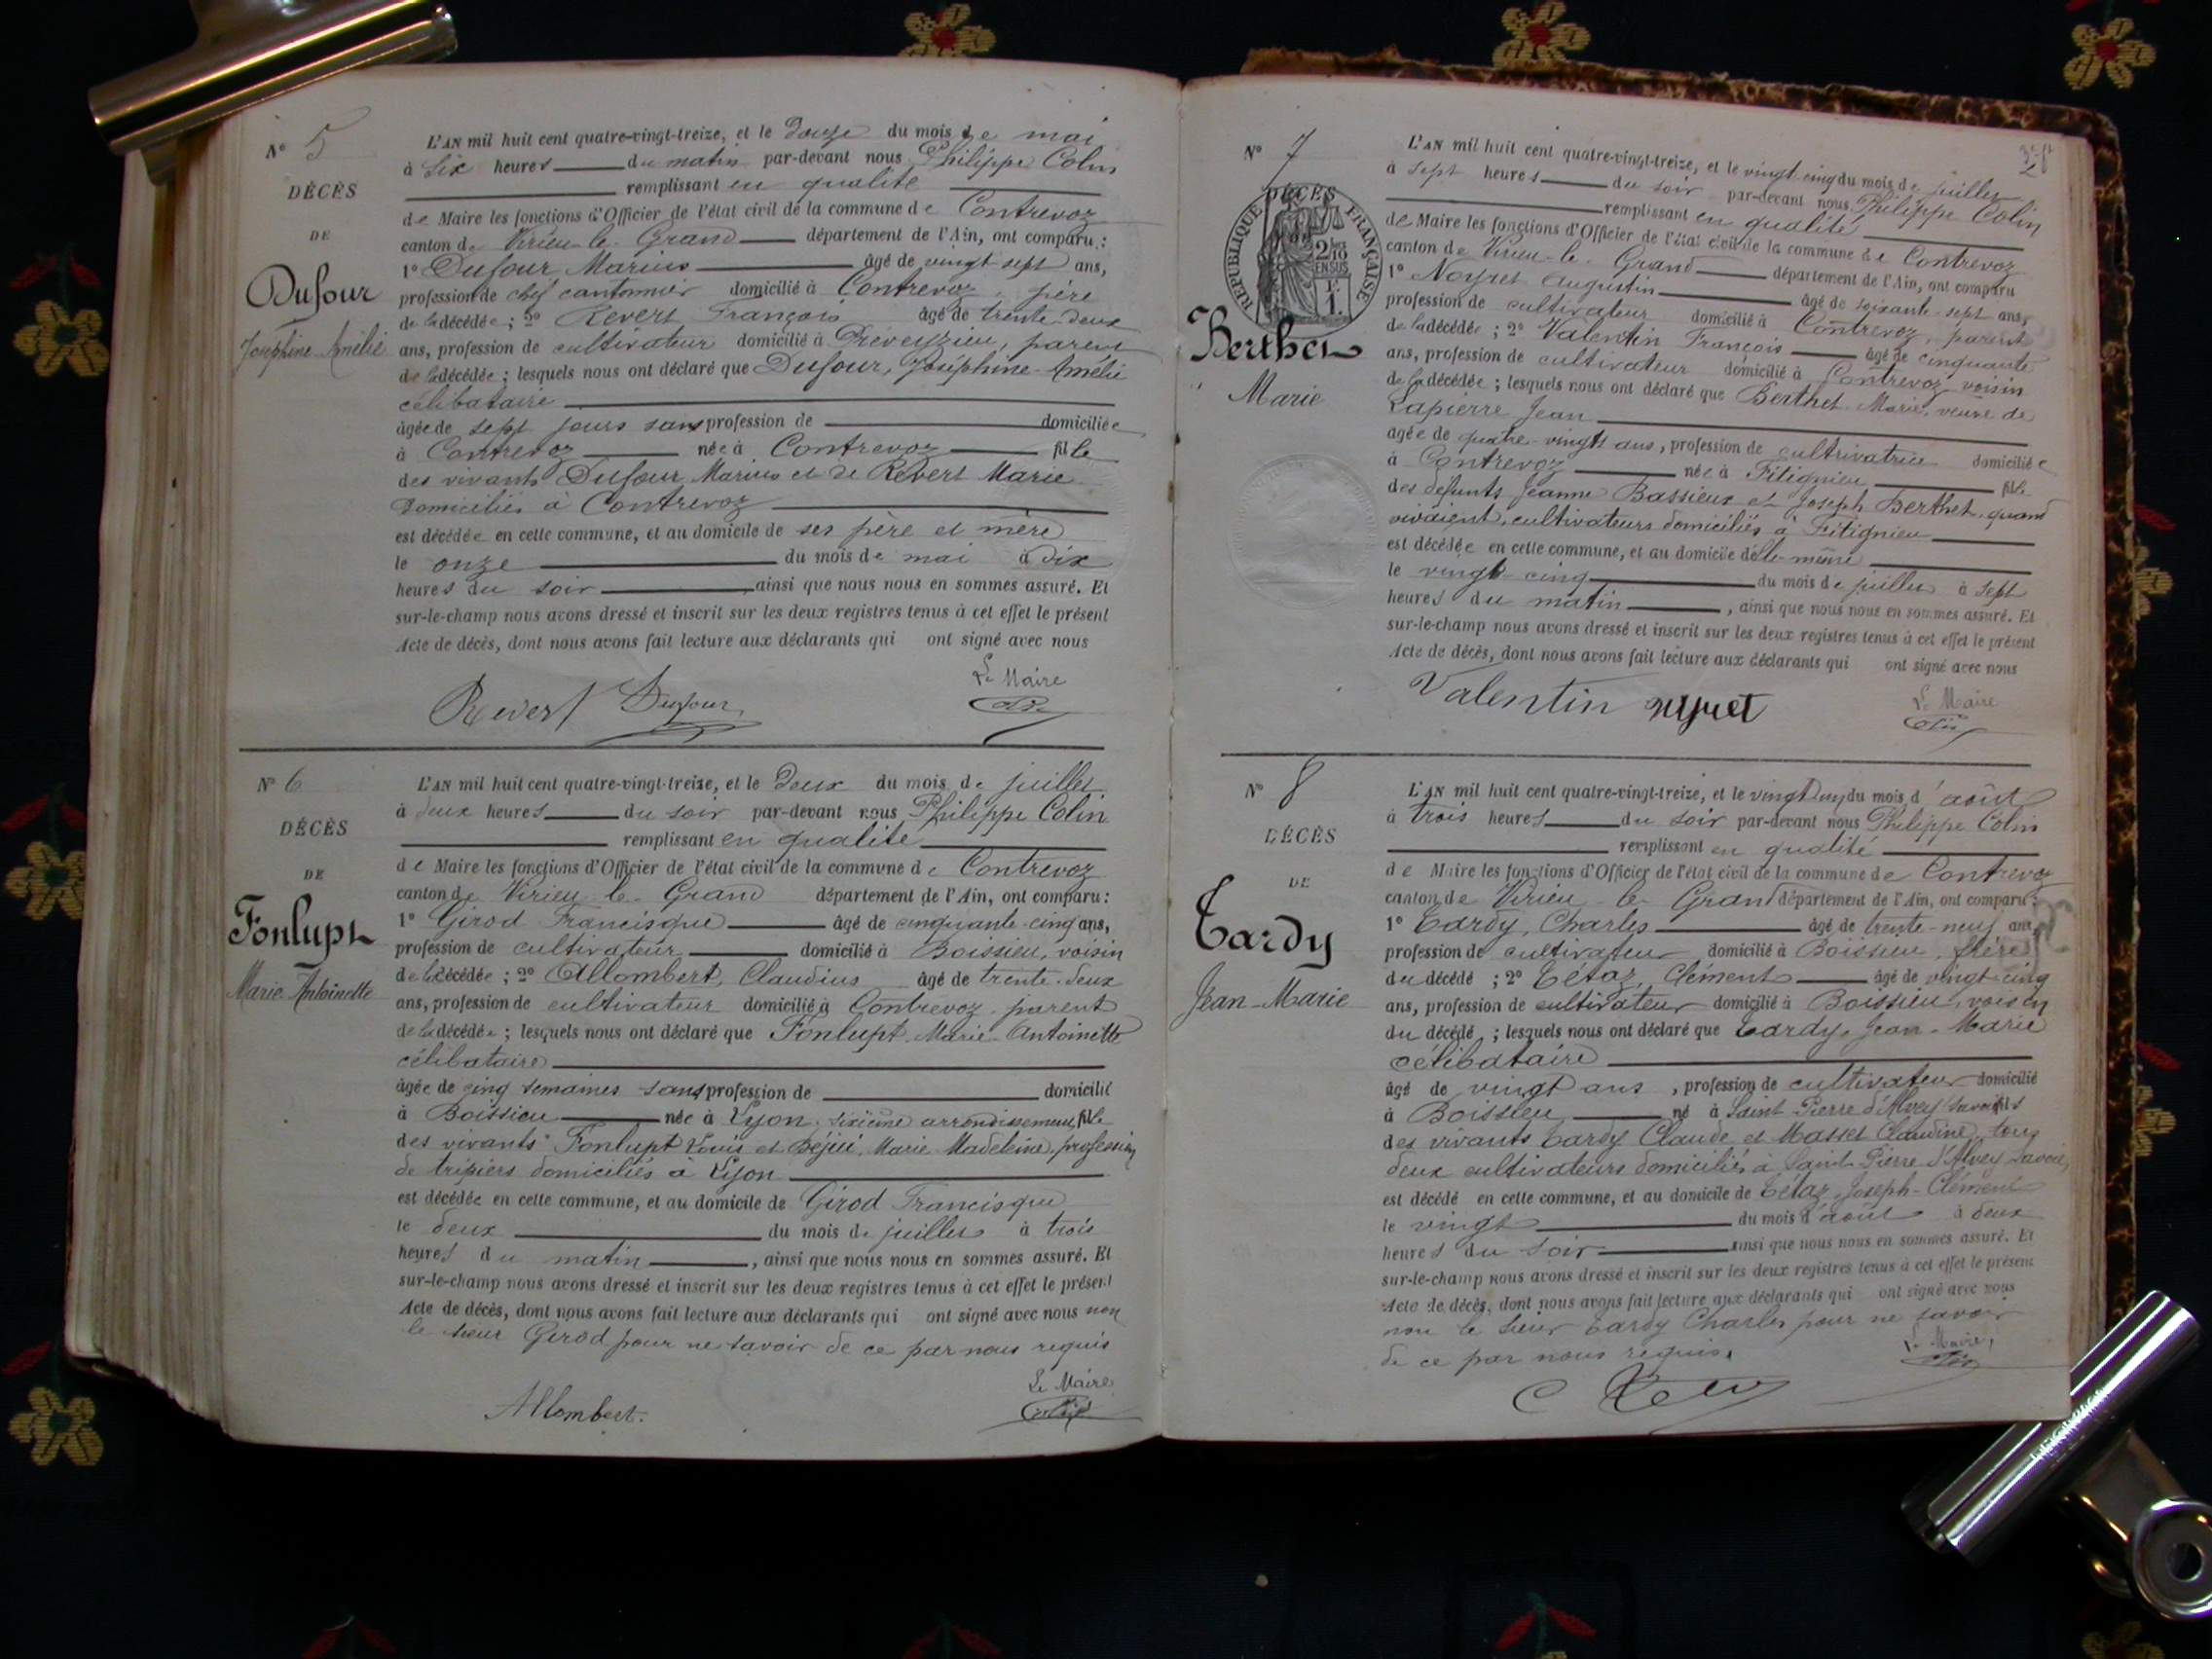 N° 5
DÉCÈS
DE
Dufour
Joséphine Amélie
L'AN mil huit cent quatre-vingt-treize, et le Douze du mois de mai
à Six heures du matin par-devant nous Philippe Colin
remplissant en qualité
de Maire les fonctions d'Officier de l'état civil de la commune de Contrevoz
canton de Virieu-le-Grand département de l'Ain, ont comparu :
1° Dufour Marius âgé de vingt sept ans,
profession de chef cantonnier domicilié à Contrevoz, père
de la décédée ; 2° Revert François âgé de trente-deux
ans, profession de cultivateur domicilié à Préveyzieu, parent
de la décédée ; lesquels nous ont déclaré que Dufour, Joséphine-Amélie
célibataire
âgée de sept jours sans profession de domiciliée
à Contrevoz née à Contrevoz fille
des vivants Dufour Marius et de Revert Marie
domiciliés à Contrevoz
est décédée en cette commune, et au domicile de ses père et mère
le onze du mois de mai à dix
heures du soir ainsi que nous nous en sommes assuré. Et
sur-le-champ nous avons dressé et inscrit sur les deux registres tenus à cet effet le présent
Acte de décès, dont nous avons fait lecture aux déclarants qui ont signé avec nous
Le Maire
Revert Dufour
N° 6
DÉCÈS
DE
Fonlupt
Marie Antoinette
L'AN mil huit cent quatre-vingt-treize, et le Deux du mois de juillet
à deux heures du soir par-devant nous Philippe Colin
remplissant en qualité
de Maire les fonctions d'Officier de l'état civil de la commune de Contrevoz
canton de Virieu-le-Grand département de l'Ain, ont comparu :
1° Girod Francisque âgé de cinquante-cinq ans,
profession de cultivateur domicilié à Boissieu, voisin
de la décédée ; 2° Allombert, Claudius âgé de trente-deux
ans, profession de cultivateur domicilié à Contrevoz, parent
de la décédée ; lesquels nous ont déclaré que Fonlupt Marie-Antoinette
célibataire
âgée de cinq semaines sans profession de domicilié
à Boissieu née à Lyon, sixième arrondissement, fille
des vivants Fonlupt Louis et Marie Madeleine, profession
de tripiers domiciliés à Lyon
est décédée en cette commune, et au domicile de Girod Francisque
le deux du mois de juillet à trois
heures du matin, ainsi que nous nous en sommes assuré. Et
sur-le-champ nous avons dressé et inscrit sur les deux registres tenus à cet effet le présent
Acte de décès, dont nous avons fait lecture aux déclarants qui ont signé avec nous non
le sieur Girod pour ne savoir de ce par nous requis
Le Maire
Allombert. Colin
N° 7
DÉCÈS
RÉPUBLIQUE FRANÇAISE
2/10
EN SUS
1.
Berthet
Marie
L'AN mil huit cent quatre-vingt-treize, et le vingt-cinq du mois de juillet
à Sept heures du soir par-devant nous Philippe Colin
remplissant en qualité
de Maire les fonctions d'Officier de l'état civil de la commune de Contrevoz
canton de Virieu-le-Grand département de l'Ain, ont comparu
1° Noyret Augustin âgé de soixante-sept ans,
profession de cultivateur domicilié à Contrevoz, parent
de la décédée ; 2° Valentin François âgé de cinquante
ans, profession de cultivateur domicilié à Contrevoz, voisin
de la décédée ; lesquels nous ont déclaré que Berthet Marie, veuve de
Lapierre Jean
âgée de quatre-vingts ans, profession de cultivatrice domiciliée
à Contrevoz née à Fitignieu fille
des défunts Jeanne Bassieux et Joseph Berthet, quand
vivaient, cultivateurs domiciliés à Fitignieu
est décédée en cette commune, et au domicile d'elle-même
le vingt-cinq du mois de juillet à sept
heures du matin, ainsi que nous nous en sommes assuré. Et
sur-le-champ nous avons dressé et inscrit sur les deux registres tenus à cet effet le présent
Acte de décès, dont nous avons fait lecture aux déclarants qui ont signé avec nous
Le Maire
Valentin Colin
N° 8
DÉCÈS
DE
Tardy
Jean-Marie
L'AN mil huit cent quatre-vingt-treize, et le du mois d'août
à trois heures du soir par-devant nous Philippe Colin
remplissant en qualité
de Maire les fonctions d'Officier de l'état civil de la commune de Contrevoz
canton de Virieu-le-Grand département de l'Ain, ont comparu :
1° Tardy, Charles âgé de trente-neuf ans,
profession de cultivateur domicilié à Boissieu, frère
du décédé ; 2° Tétaz, Clément âgé de vingt-cinq
ans, profession de cultivateur domicilié à Boissieu, voisin
du décédé ; lesquels nous ont déclaré que Tardy, Jean-Marie
célibataire
âgé de vingt ans, profession de cultivateur domicilié
à Boissieu né à Saint Pierre d'Alvey Savoie fils
des vivants Tardy Claude et Masset Claudine, tous
deux cultivateurs domiciliés à Saint-Pierre d'Alvey Savoie,
est décédé en cette commune, et au domicile de Tétaz, Joseph-Clément
le vingt du mois d'août à deux
heures du soir ainsi que nous nous en sommes assuré. Et
sur-le-champ nous avons dressé et inscrit sur les deux registres tenus à cet effet le présent
Acte de décès, dont nous avons fait lecture aux déclarants qui ont signé avec nous
non le sieur Tardy Charles pour ne savoir
de ce par nous requis.
Le Maire,
Colin